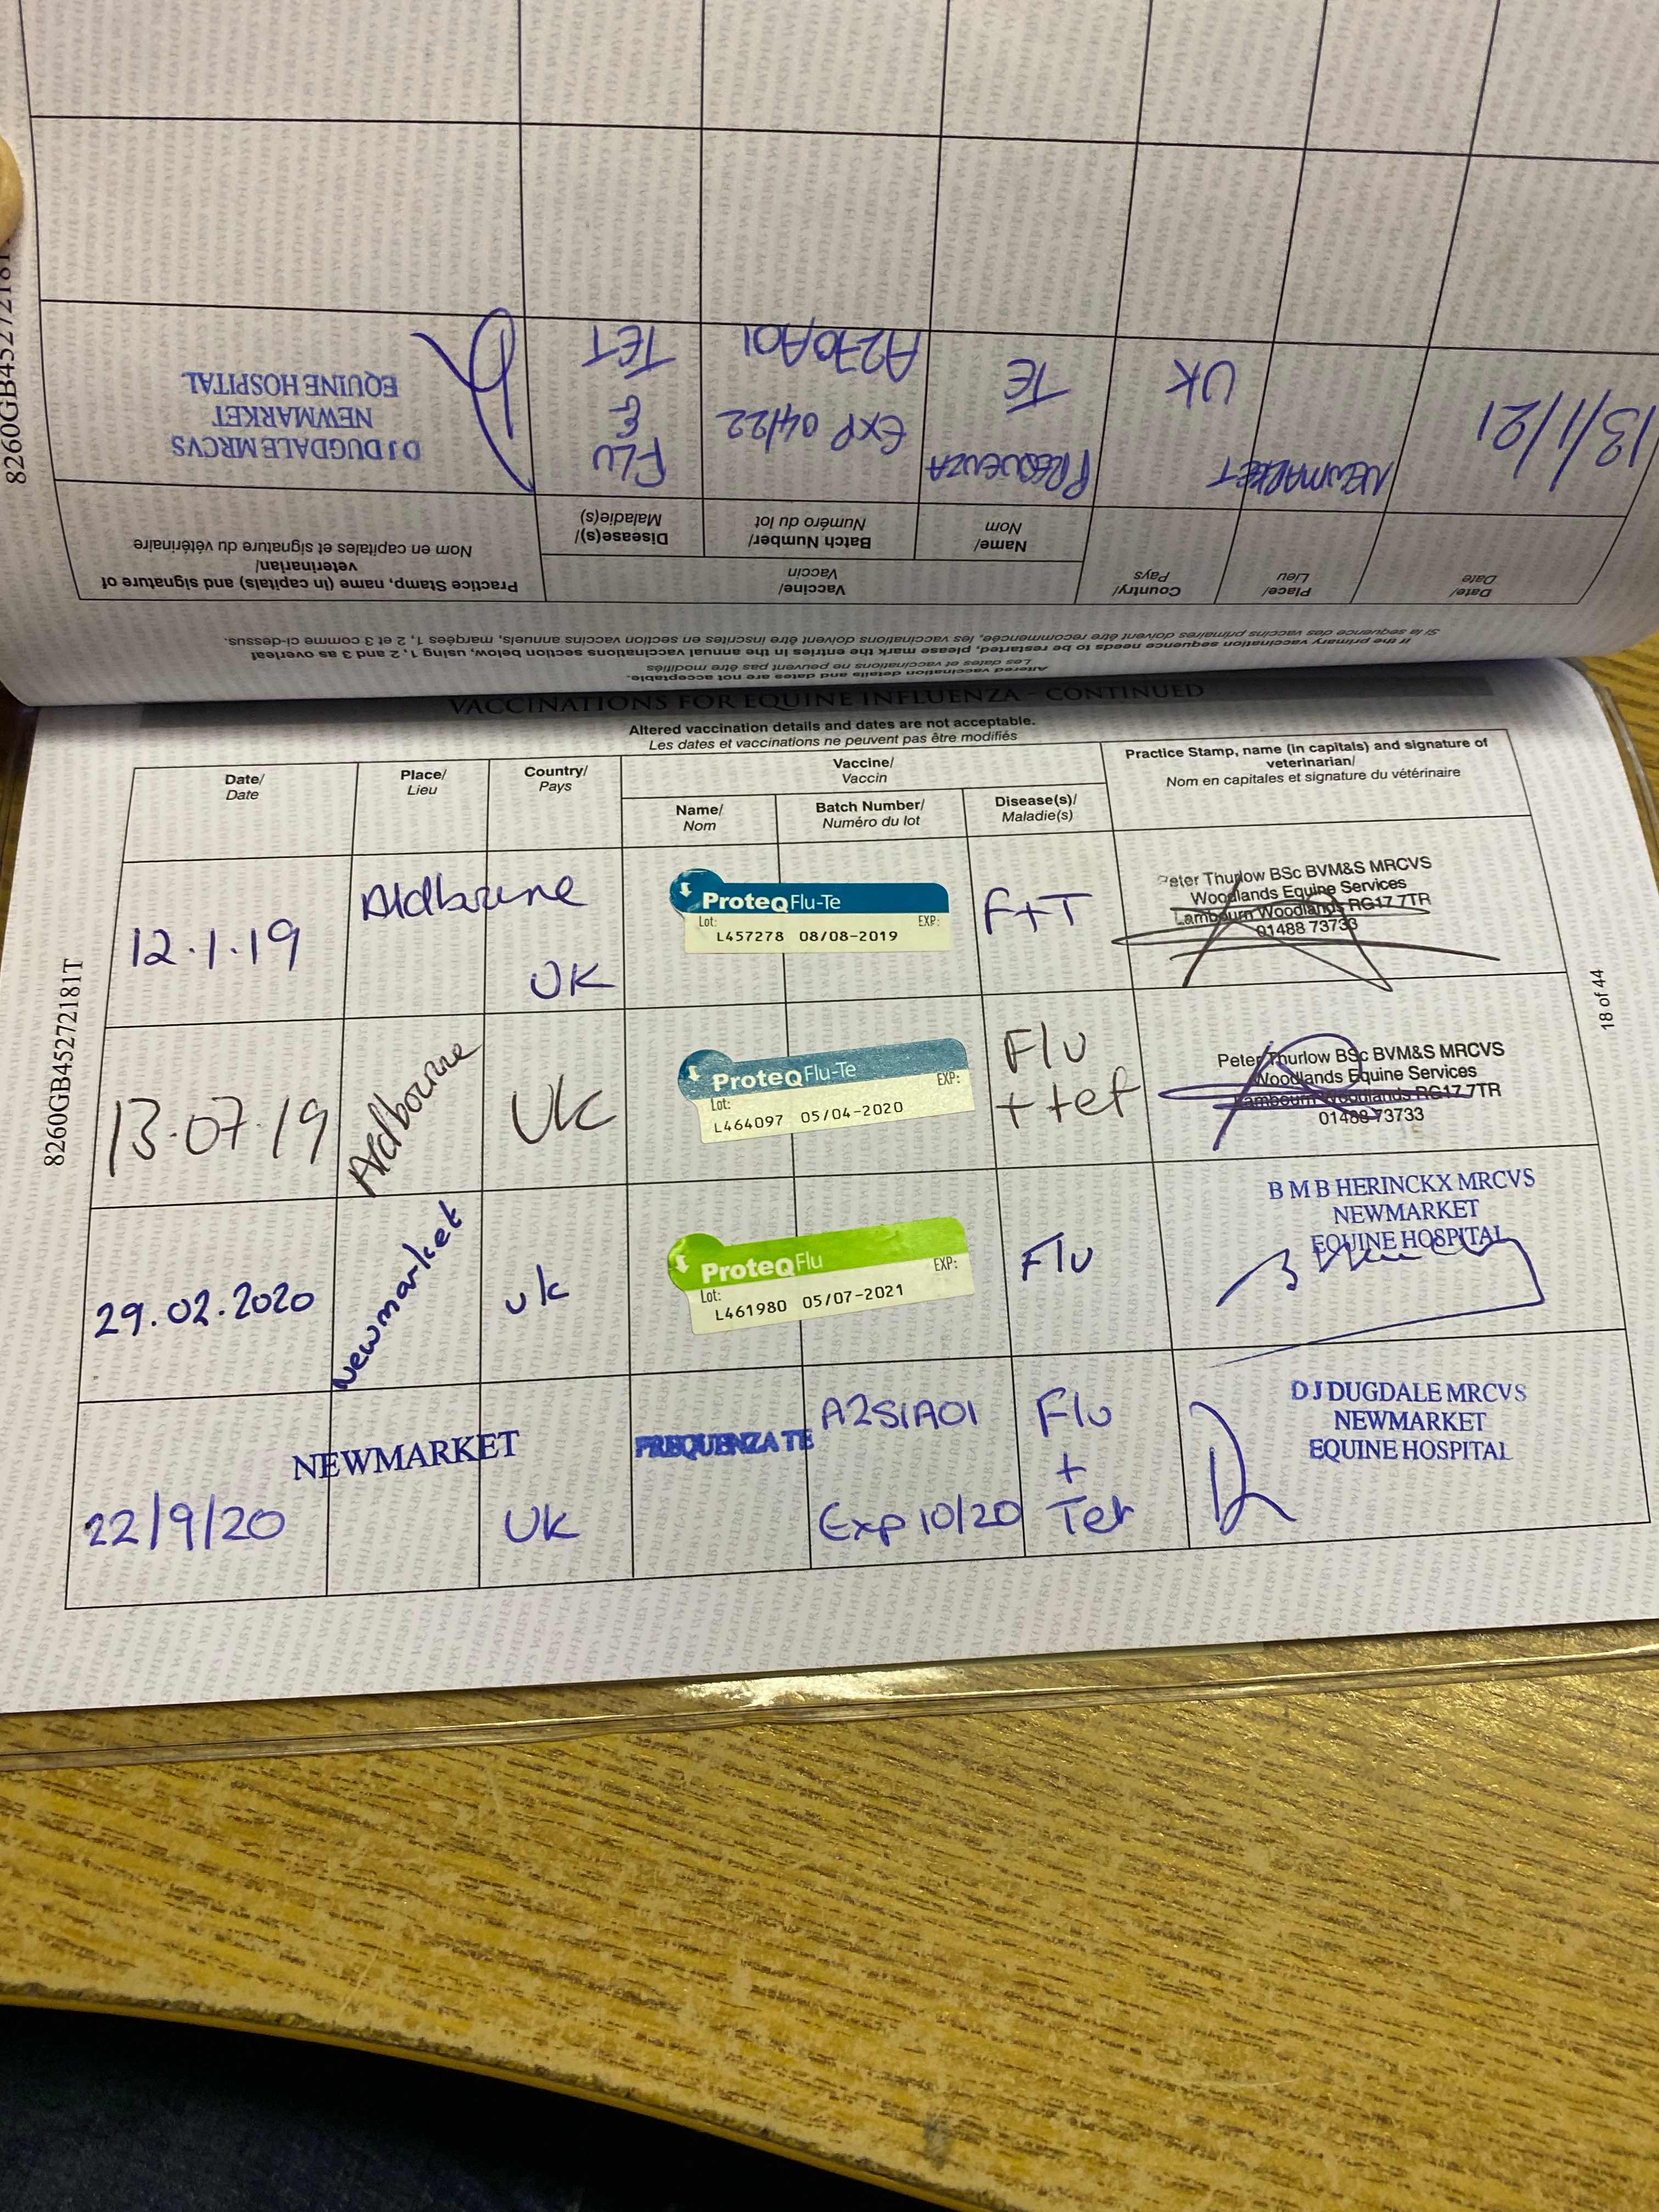 8260GB45272181T
VACCINATIONS FOR EQUINE INFLUENZA – CONTINUED
Altered vaccination details and dates are not acceptable.
Les dates et vaccinations ne peuvent pas être modifiés
Date/
Date
Place/
Lieu
Country/
Pays
Vaccine/
Vaccin
Name/
Nom
Batch Number/
Numéro du lot
Disease(s)/
Maladie(s)
Practice Stamp, name (in capitals) and signature of
veterinarian/
Nom en capitales et signature du vétérinaire
12.1.19
Aldbourne
UK
ProteqFlu-Te
Lot: EXP:
L457278 08/08-2019
F+T
Peter Thurlow BSc BVM&S MRCVS
Woodlands Equine Services
Lambourn Woodlands RG17 7TR
01488 73733
13.07.19
Aldbourne
UK
ProteqFlu-Te
Lot: EXP:
L464097 05/04-2020
Flu
+ tet
Peter Thurlow BSc BVM&S MRCVS
Woodlands Equine Services
Lambourn Woodlands RG17 7TR
01488 73733
29.02.2020
Newmarket
uk
ProteqFlu
Lot: EXP:
L461980 05/07-2021
Flu
B M B HERINCKX MRCVS
NEWMARKET
EQUINE HOSPITAL
22/9/20
NEWMARKET
UK
PREQUENZA TE
A251A01
Exp 10/20
Flu
+
Tet
D J DUGDALE MRCVS
NEWMARKET
EQUINE HOSPITAL
18 of 44
Altered vaccination details and dates are not acceptable.
Les dates et vaccinations ne peuvent pas être modifiés
If the primary vaccination sequence needs to be restarted, please mark the entries in the annual vaccinations section below, using 1, 2 and 3 as overleaf
Si la séquence des vaccins primaires doivent être recommencée, les vaccinations doivent être inscrites en section vaccins annuels, marqées 1, 2 et 3 comme ci-dessus.
Date/
Date
Place/
Lieu
Country/
Pays
Vaccine/
Vaccin
Name/
Nom
Batch Number/
Numéro du lot
Disease(s)/
Maladie(s)
Practice Stamp, name (in capitals) and signature of
veterinarian/
Nom en capitales et signature du vétérinaire
13/1/21
NEWMARKET
UK
PREQUENZA
TE
EXP 04/22
A270A01
FLU
&
TET
D J DUGDALE MRCVS
NEWMARKET
EQUINE HOSPITAL